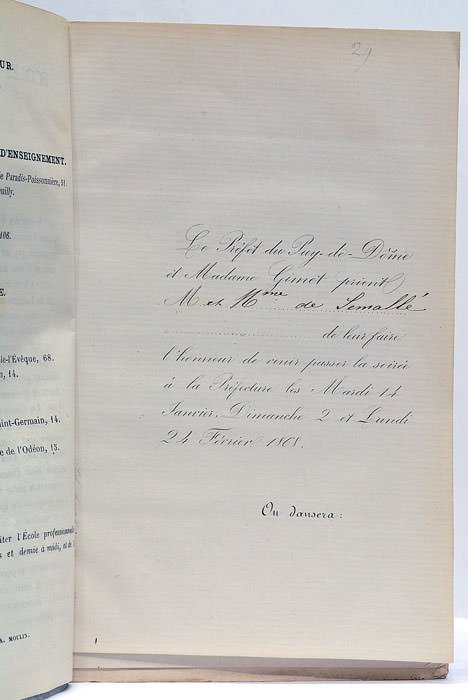 29
UR.
D'ENSEIGNEMENT.
e Paradis-Poissonnière, 51.
euilly.
106.
E.
le-l'Évêque, 68.
n, 14.
aint-Germain, 14.
e de l'Odéon, 15.
iter l'École professionnelle
s et demie à midi, et de
A. MOULIN.
Le Préfet du Puy-de-Dôme
et Madame Gimet prient
M et Mme de Semallé
de leur faire
l'honneur de venir passer la soirée
à la Préfecture les Mardi 14
Janvier, Dimanche 2 et Lundi
24 Février 1868.
On dansera: